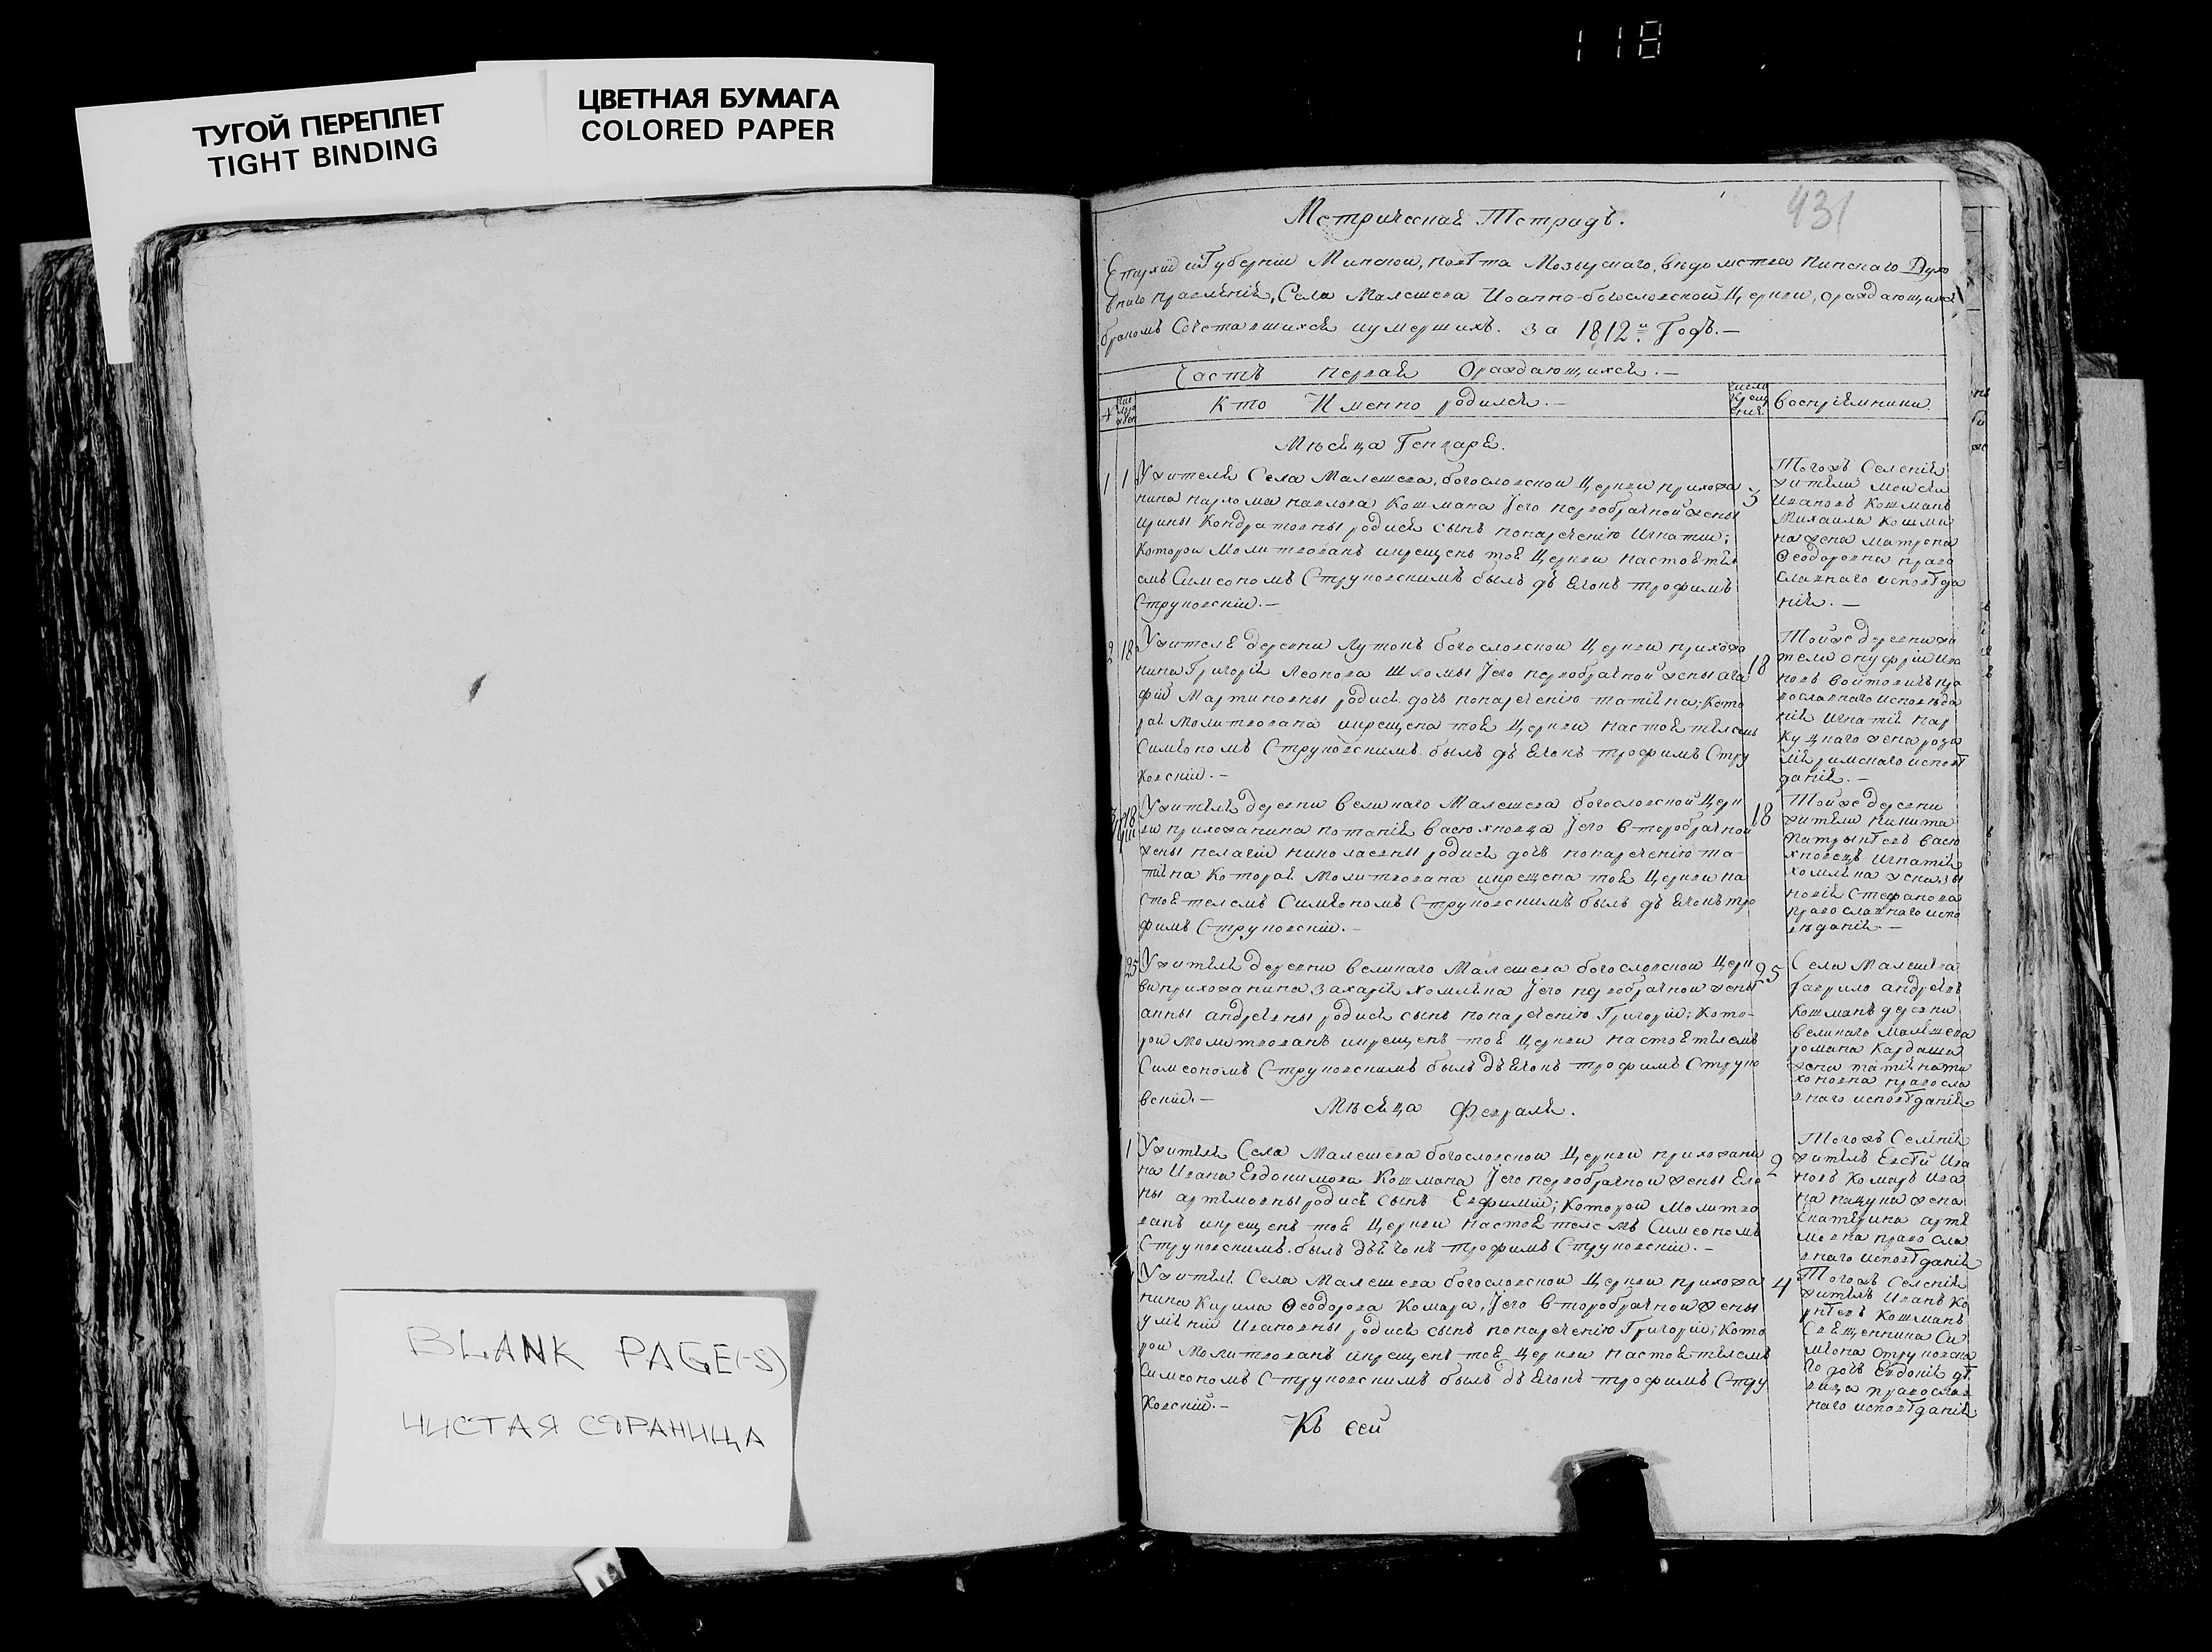 118
ТУГОЙ ПЕРЕПЛЕТ
TIGHT BINDING
ЦВЕТНАЯ БУМАГА
COLORED PAPER
BLANK PAGE(-S)
ЧИСТАЯ СТРАНИЦА
431
Метрическая Тетрадь.
Епархіи и Губерніи Минской, повѣта Мозырскаго, вѣдомства Пинскаго Духо
внаго правленія, Села Малешева Иоанно-богословской Церкви, ораждающихся
бракомъ Сочетавшихся и умершихъ. за 1812й Годъ.—
Часть первая Ораждающихся.—
Кто Именно родился.—
число крещенія
воспріемники.
Мѣсяца Генваря.
1 1 Ужителя Села Малешева, богословской Церкви прихожа
нина пархома павлова Кошмана Iего первобрачной жены
ирины Кондратовны родися сынъ понареченію Игнатий;
которой Молитвованъ икрещенъ тоя Церкви настояте
емъ Симеономъ Струковскимъ былъ дьячокъ трофимъ
Струковский.—
3
Тогожъ Селенія
жители Моисей
Ивановъ Кошманъ
Михаила Кошма
на жена Матрона
Ѳеодоровна право
славнаго исповѣда
нія.—
2 18 Ужителя деревни Лутокъ богословской Церкви прихожа
нина Григорія Леонова Шломы Iего первобрачной жены ага
фіи Мартиновны родися дочь понареченію татіяна; Кото
рая Молитвована икрещена тоя Церкви настоятелемъ
Симеономъ Струковскимъ. былъ дьячокъ трофимъ Стру
ковский.—
18
Тойже деревни жи
тели онуфрій Ива
новъ войтовичъ пра
вославнаго исповѣда
нія Игнатія
жена
римскаго исповѣ
данія.—
3 18 Ужителя деревни великаго Малешева богословской Церк
ви прихожанина потапія васюхновца Iего второбрачной
жены пелагіи николаевны родися дочь понареченію та-
тіяна Которая Молитвована икрещена тоя Церкви на
стоятелемъ Симеономъ Струковскимъ былъ дьячокъ тро
фимъ Струковский.—
18
Тойже деревни
жители никита
васю
хновецъ Игнатія
хомляка жена
Стефанова
православнаго испо
вѣданія.—
25 Ужителя деревни великаго Малешева богословской Церк
ви прихожанина Захарія хомляка Iего первобрачной жены
анны андреевны родися сынъ понареченію Григорий; Кото-
рой Молитвованъ икрещенъ тоя Церкви настоятелемъ
Симеономъ Струковскимъ былъ дьячокъ трофимъ Струко
вский.—
25
Села Малешева
гаврило андреевъ
Кошманъ деревни
великаго Малешева
романа Кардаша
жена татіяна
правосла
внаго исповѣданія
Мѣсяца Февраля.
1 Ужителя Села Малешева богословской Церкви прихожани
на Ивана Евдокимова Кошмана Iего первобрачной жены Еле
ны артемовны родися сынъ Евфимий; Которой Молитво
ванъ икрещенъ тоя Церкви настоятелемъ Симеономъ
Струковскимъ. былъ дьячокъ трофимъ Струковский.—
2
Тогожъ Селенія
житель Ива
новъ Комаръ Ива
на пацука жена
Екатерина арте
мовна правосла
внаго исповѣданія
Ужителя Села Малешева богословской Церкви прихожа
нина Кирила Ѳеодорова Комара, Iего второбрачной жены
уліянии Ивановны родися сынъ понареченію Григорий; Кото
рой Молитвованъ икрещенъ тоя Церкви настоятелемъ
Симеономъ Струковскимъ былъ дьячокъ трофимъ Стру
ковский.—
4
Тогожъ Селенія
житель Иванъ Ко
Кошманъ
Священника Си
меона Струковска
го дочь Евдокія дѣ
вица православ
наго исповѣданія
Къ сей